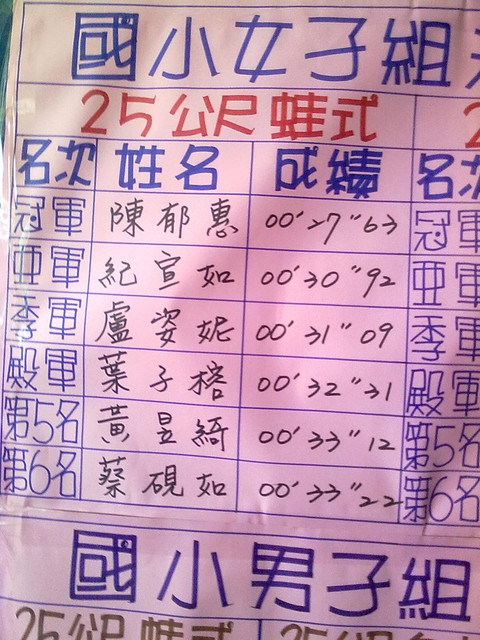 國小女子組
25公尺蛙式
名次 姓名 成績 名次
冠軍 陳郁惠 00'27"63 冠軍
亞軍 紀宣如 00'30"92 亞軍
季軍 盧姿妮 00'31"09 季軍
殿軍 葉子榕 00'32"31 殿軍
第5名 黃昱綺 00'33"12 第5名
第6名 蔡硯如 00'33"22 第6名
國小男子組
25公尺蛙式 25公尺